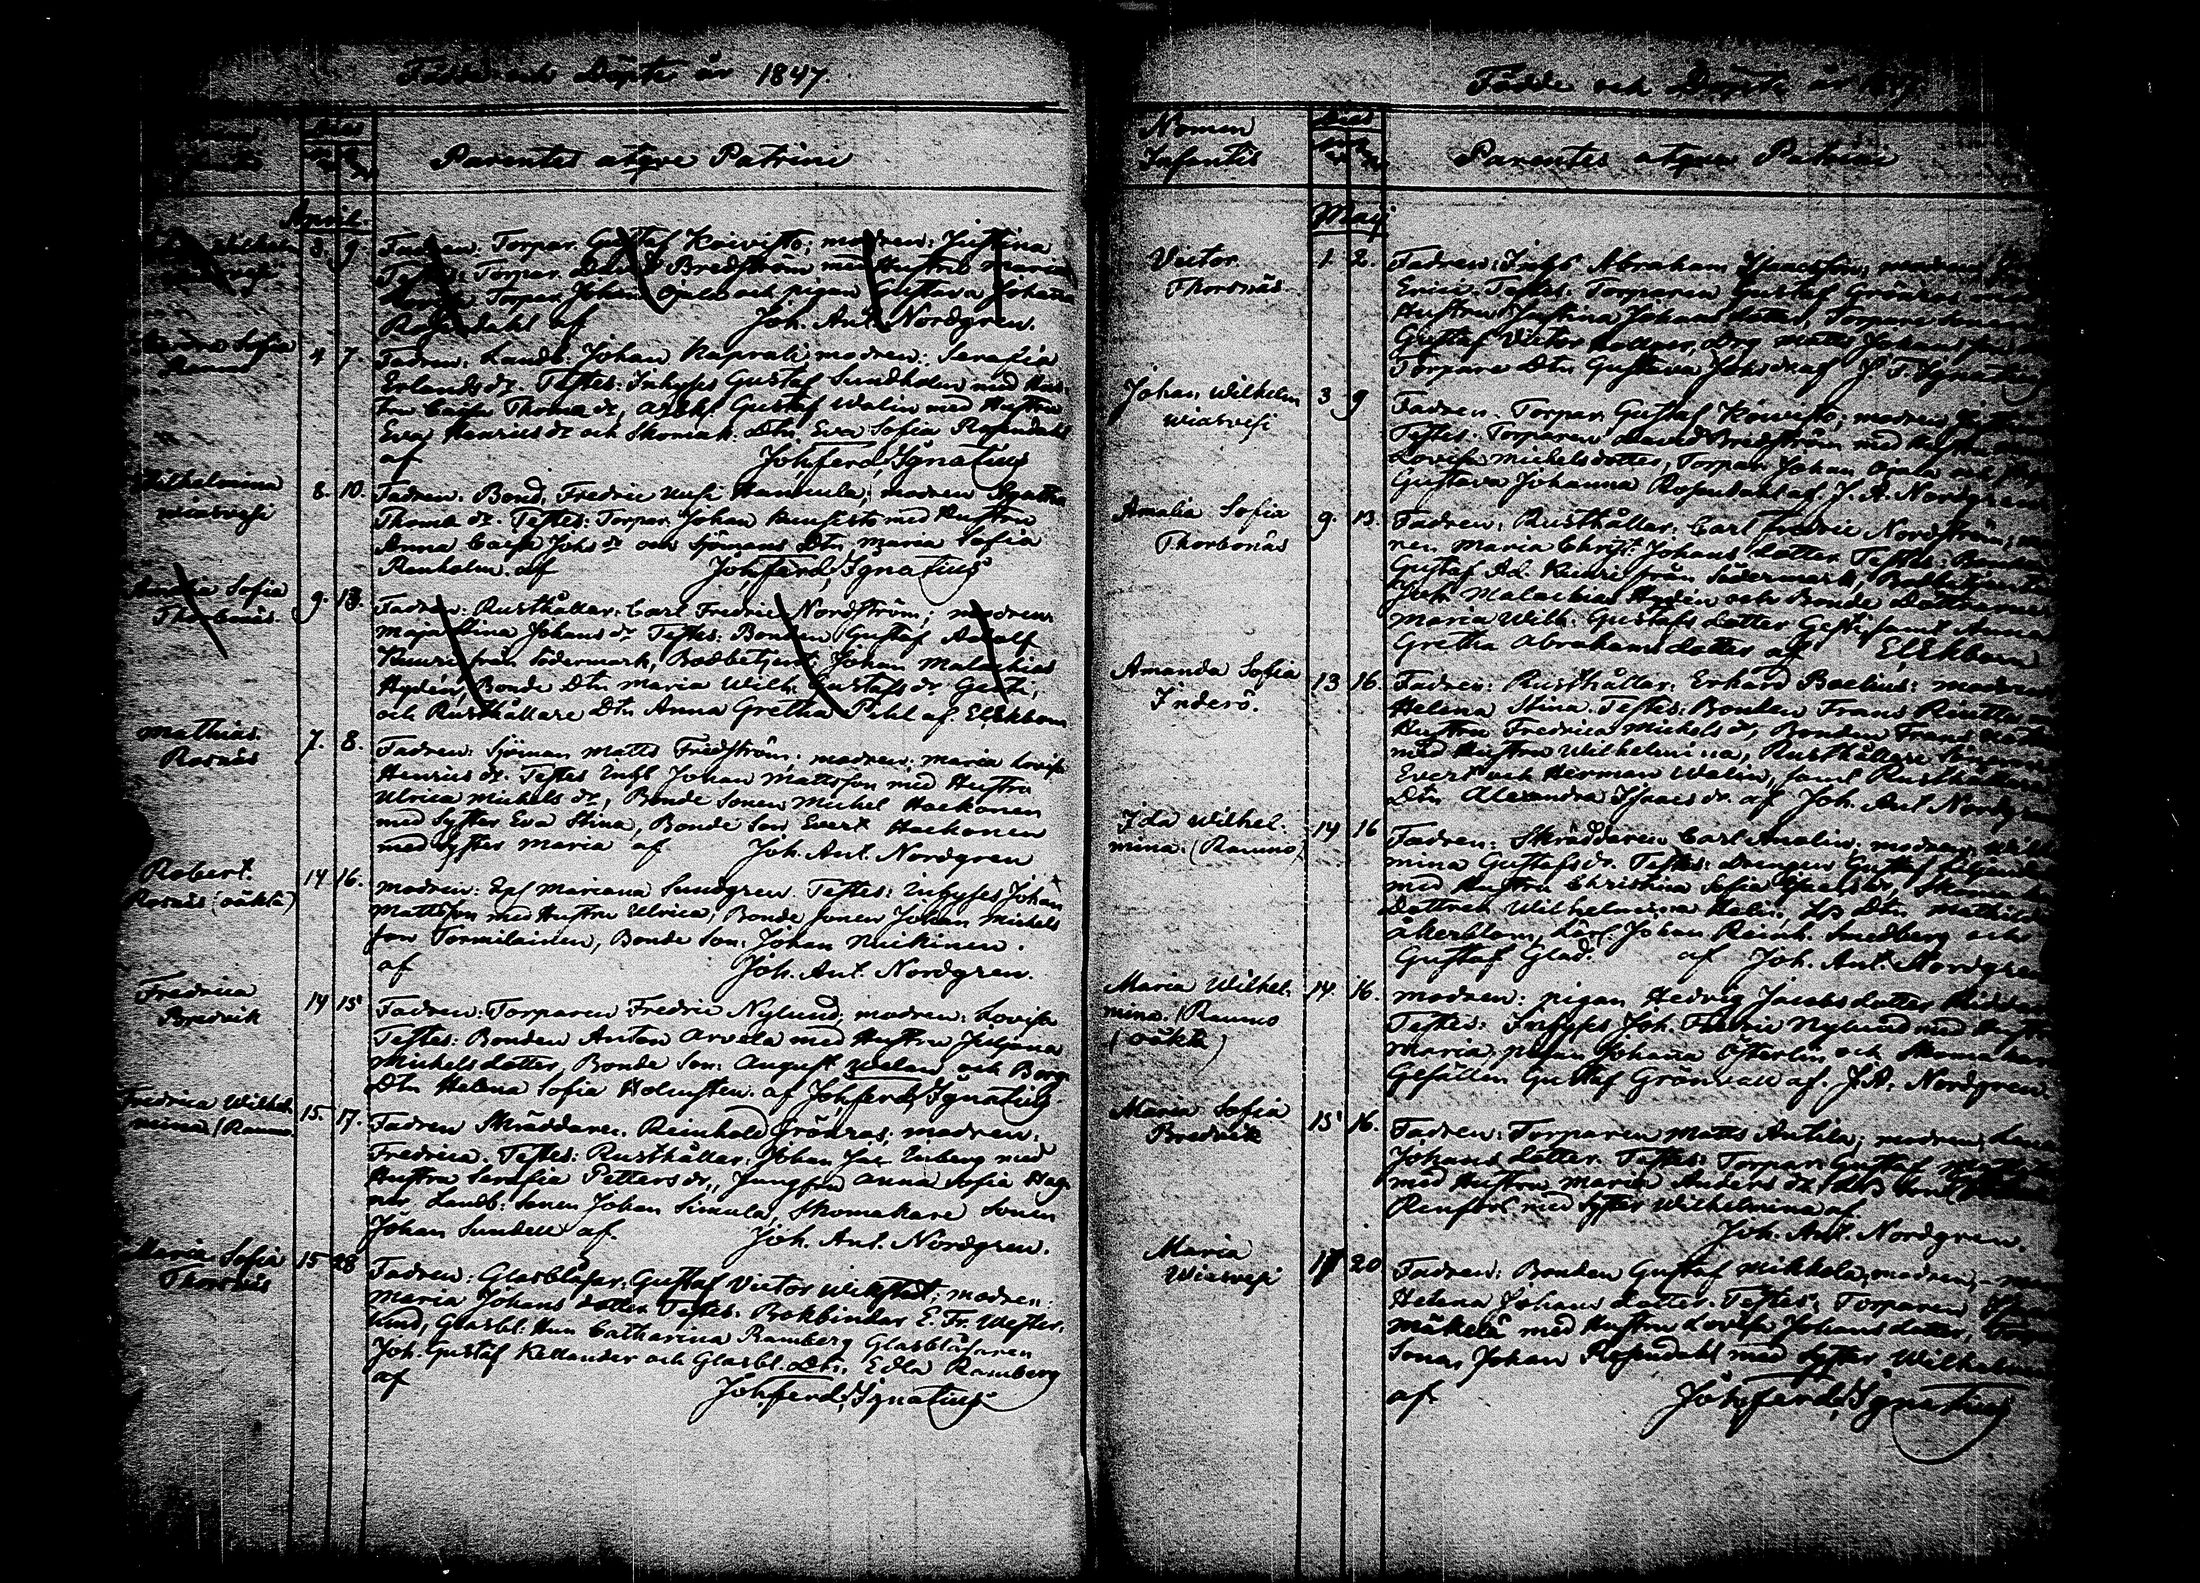 Födde och Döpte år 1847.
Parentes atque Patrini
April.
Wilhelm 3 9 Fadren: Torpar. Gustaf Koivisto; modren: Justina
Testes: Torpar. David Bredström med Hustru Maria
Torpar. Johan Ojala och pigan Gustava Johanna
Rosendahl af Joh. Ant. Nordgren.
Sofia 4 7. Fadren: Landb: Johan Kaprali modren: Serafia
Raumo
Erlands dr. Testes: Inhyses Gustaf Sundholm med Hus-
tru Caisa Thomæ dr, Gustaf Walin med Hustru
Eva Henrics dr och Skomak: Dtn Eva Sofia Rosendahl
af Joh. Ferd. Ignatius
Wilhelmina 8. 10. Fadren: Bond. Fredric Uusi Hannula; modren Agatha
wiasvesi
Thomæ dr. Testes: Torpar. Johan Kunsisto med Hustru
Anna Caisa Johs dr och Sjömans Dtn Maria Sofia
Renholm. af Joh. Ferd. Ignatius
Amalia Sofia 9. 13. Fadren: Rusthållar: Carl Fredric Nordström; modren:
Thorbonäs.
Maja Stina Johans dr Testes: Bonden Gustaf Adolf
Knuri från Södermark, Bodbetjent: Johan Malachias
Hydén, Bonde Dtn Maria Wilh: Gustafs dr Gesti,
och Rusthållare Dtn Anna Gretha Pihl af. El. Ekbom
Mathias 7. 8. Fadren: Sjöman Matts Fredström; modren: Maria Lovisa
Rosnäs
Henrics dr. Testes Inhs Johan Mattsson med Hustru
Ulrica Michels dr, Bonde Sonen Michel Haekonen
med Syster Eva Stina, Bonde Son Evert Haekonen
med syster Maria af Joh. Ant. Nordgren
Robert. 14 16. Modren: Eps Mariana Sundgren. Testes: Inhyses Johan
Rosnäs (oäkta)
Mattsson med Hustru Ulrica, Bonde sonen Johan Michels
son Tormilainen, Bonde Son: Johan Nuikinen.
af Joh. Ant. Nordgren.
Fredrica 14 15 Fadren: Torparen Fredric Nylund; modren: Lovisa
Bredvik
Testes: Bonden Anton Arvela med Hustru Juliana
Michelsdotter, Bonde Son: August Welen och Borg:
Dtn Helena Sofia Holmsten. af Joh. Ferd. Ignatius
Fredrica Wilhel- 15. 17. Fadren Skräddaren. Reinhold Grönros; modren:
mina (Raumo
Fredrica. Testes: Rusthållar. Johan Jac Enberg med
Hustru Serafia Petters dr, Jungfru Anna Sofia Hag-
ner Landb: sonen Johan Simula, Skomakare Sonen
Johan Sundell af. Joh. Ant. Nordgren.
Maria Sofia 15 28 Fadren: Glasblåsar. Gustaf Victor Wikstedt; modren:
Thorsnäs
Maria Johansdotter Testes: Bokbindar E. Fr. Wester-
lund, Glasbl: Hun Catharina Ramberg Glasblåsaren
Joh. Gustaf Kellander och Glasbl. Dtn, Edla Ramberg
af Joh. Ferd. Ignatius
Födde och Döpte år 1847.
Nomen Infantis Parentes atque Patrini
Maij
Victor. 1. 2. Fadren: Inhs Abraham Isaacsson; modren:
Thorsnäs.
Erici. Testes: Torparen Gustaf Grönros med
Hustru Justina Johansdotter, Torpare
Gustaf Victor Drg Matts Johans
Torpare Dtn Gustava Johs dr af J. F. Ignatius
Johan Wilhelm 3 9 Fadren. Torpar. Gustaf Koivisto; modren Justina
wiasvesi
Testes. Torparen David Bredström med hustru
Lovisa Michelsdotter, Torpar. Johan Ojala och
Gustava Johanna Rosendahl af J. A. Nordgren
Amalia Sofia 9. 13. Fadren: Rusthållar: Carl Fredric Nordström; mo
Thorbonäs
ren Maria Christ: Johansdotter Testes: Bonden
Gustaf Ad. Knuri från Södermark, Bodbetjent:
Joh. Malachias Hydén och Bonde Döttrarne
Maria Wilh: Gustafsdotter Gesti samt Anna
Gretha Abrahamsdotter af El. Ekbom
Amanda Sofia 13 16. Fadren: Rusthållar: Erhard Boelius: modren
Inderö.
Helena Stina. Testes: Bonden Frans
Hustru Fredrica Michels dr, Bonden Frans
med Hustru Wilhelmina, Rusthållare
Evert och Herman Walin, samt Rusthållare
Dtn Alexandra Isaacs dr. af Joh. Ant. Nordgren
Ida Wilhel- 14 16 Fadren: Skräddaren Carl Amalin; modren: Wilhel
mina. (Raumo)
mina Gustafs dr. Testes: Drengen Gustaf
med Hustru Christina Sofia Skomak
Dottren Wilhelmina Helin, Dtn Mathilda
Åkerblom, Karl Johan Reinh. Smedberg och
Gustaf Glad. af Joh. Ant. Nordgren
Maria Wilhel- 14. 16. modren: pigan Hedvig Jacobsdotter
mina. (Raumo
(oäkta)
Testes: Inhyses Joh. Fredric Nylund med hustru
Maria, pigan Johanna Österlin och Skomakare
Gesällen Gustaf Grönvall af. J. A. Nordgren.
Maria Sofia 15 16. Fadren: Torparen Matts Antila; modren Lena
Bredvik
Johansdotter Testes: Torpar: Gustaf
med Hustru Maria Anders dr
Renfors med syster Wilhelmina af.
Joh. Ant. Nordgren.
Maria 17 20 Fadren: Bonden Gustaf Mikkola; modren;
Wiasvesi
Helena Johansdotter. Testes: Torparen
Mäkelä med Hustru Lovisa Johansdotter,
Sonen Johan Rosendahl med syster Wilhelmina
af Joh. Ferd. Ignatius